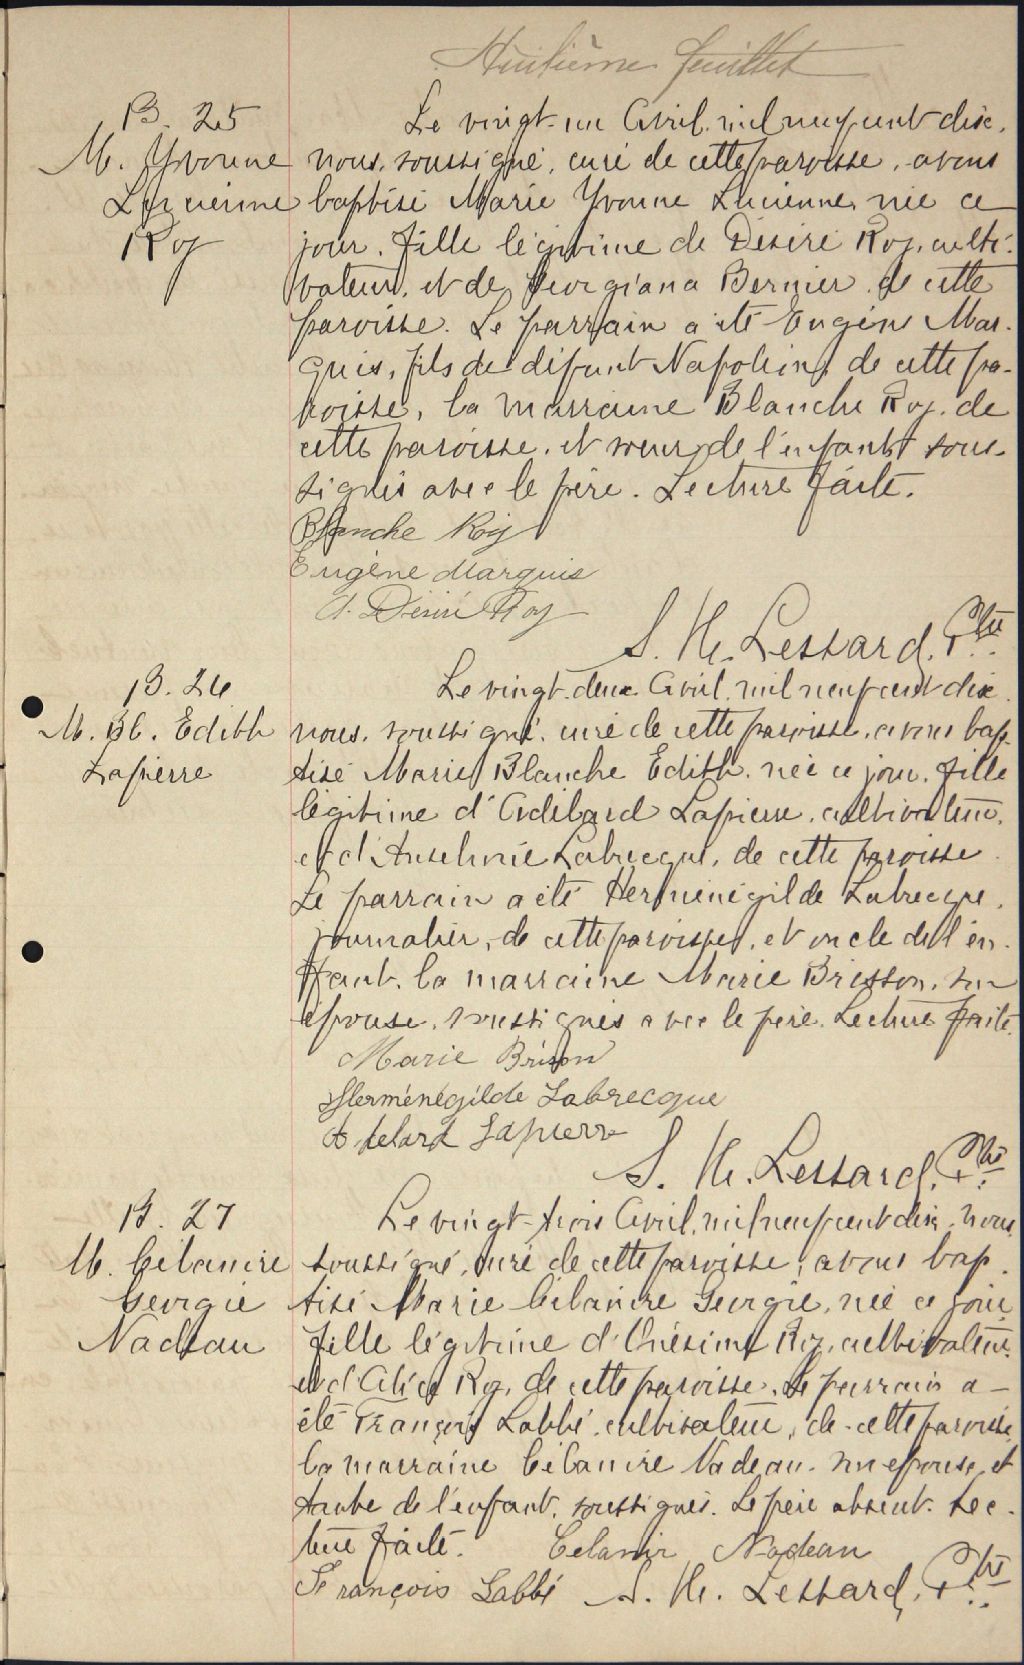 Huitième feuillet
B. 25
M. Yvonne
Lucienne
Roy
Le vingt-un Avril, mil neuf cent dix,
nous, soussigné, curé de cette paroisse, avons
baptisé Marie Yvonne Lucienne, née ce
jour, fille légitime de Désiré Roy, culti-
vateur, et de Georgiana Bernier, de cette
paroisse. Le parrain a été Eugène Mar-
quis, fils de défunt Napoléon, de cette pa-
roisse, la marraine Blanche Roy, de
cette paroisse, et soeur de l'enfant sous-
signés avec le père. Lecture faite.
Blanche Roy
Eugène Marquis
Désiré Roy
S. H. Lessard, Ptre
B. 26
M. Bl. Edith
Lapierre
Le vingt-deux Avril, mil neuf cent dix,
nous, soussigné, curé de cette paroisse, avons bap-
tisé Marie Blanche Edith, née ce jour, fille
légitime d'Adélard Lapierre, cultivateur,
et d'Anselmie Labrecque, de cette paroisse.
Le parrain a été Herménégilde Labrecque,
journalier, de cette paroisse, et oncle de l'en-
fant, la marraine Marie Brisson, son
épouse, soussignés avec le père. Lecture faite.
Marie Brison
Herménégilde Labrecque
Adelard Lapierre
S. H. Lessard, Ptre
B. 27
M. Célanire
Georgie
Nadeau
Le vingt-trois Avril, mil neuf cent dix, nous,
soussigné, curé de cette paroisse, avons bap-
tisé Marie Célanire Georgie, née ce jour,
fille légitime d'Onésime Roy, cultivateur,
et d'Alice Roy, de cette paroisse. Le parrain a
été François Labbé, cultivateur, de cette paroisse,
la marraine Célanire Nadeau, son épouse, et
tante de l'enfant, soussignés. Le père absent. Lec-
ture faite. Celanir Nadeau
François Labbé S. H. Lessard, Ptre